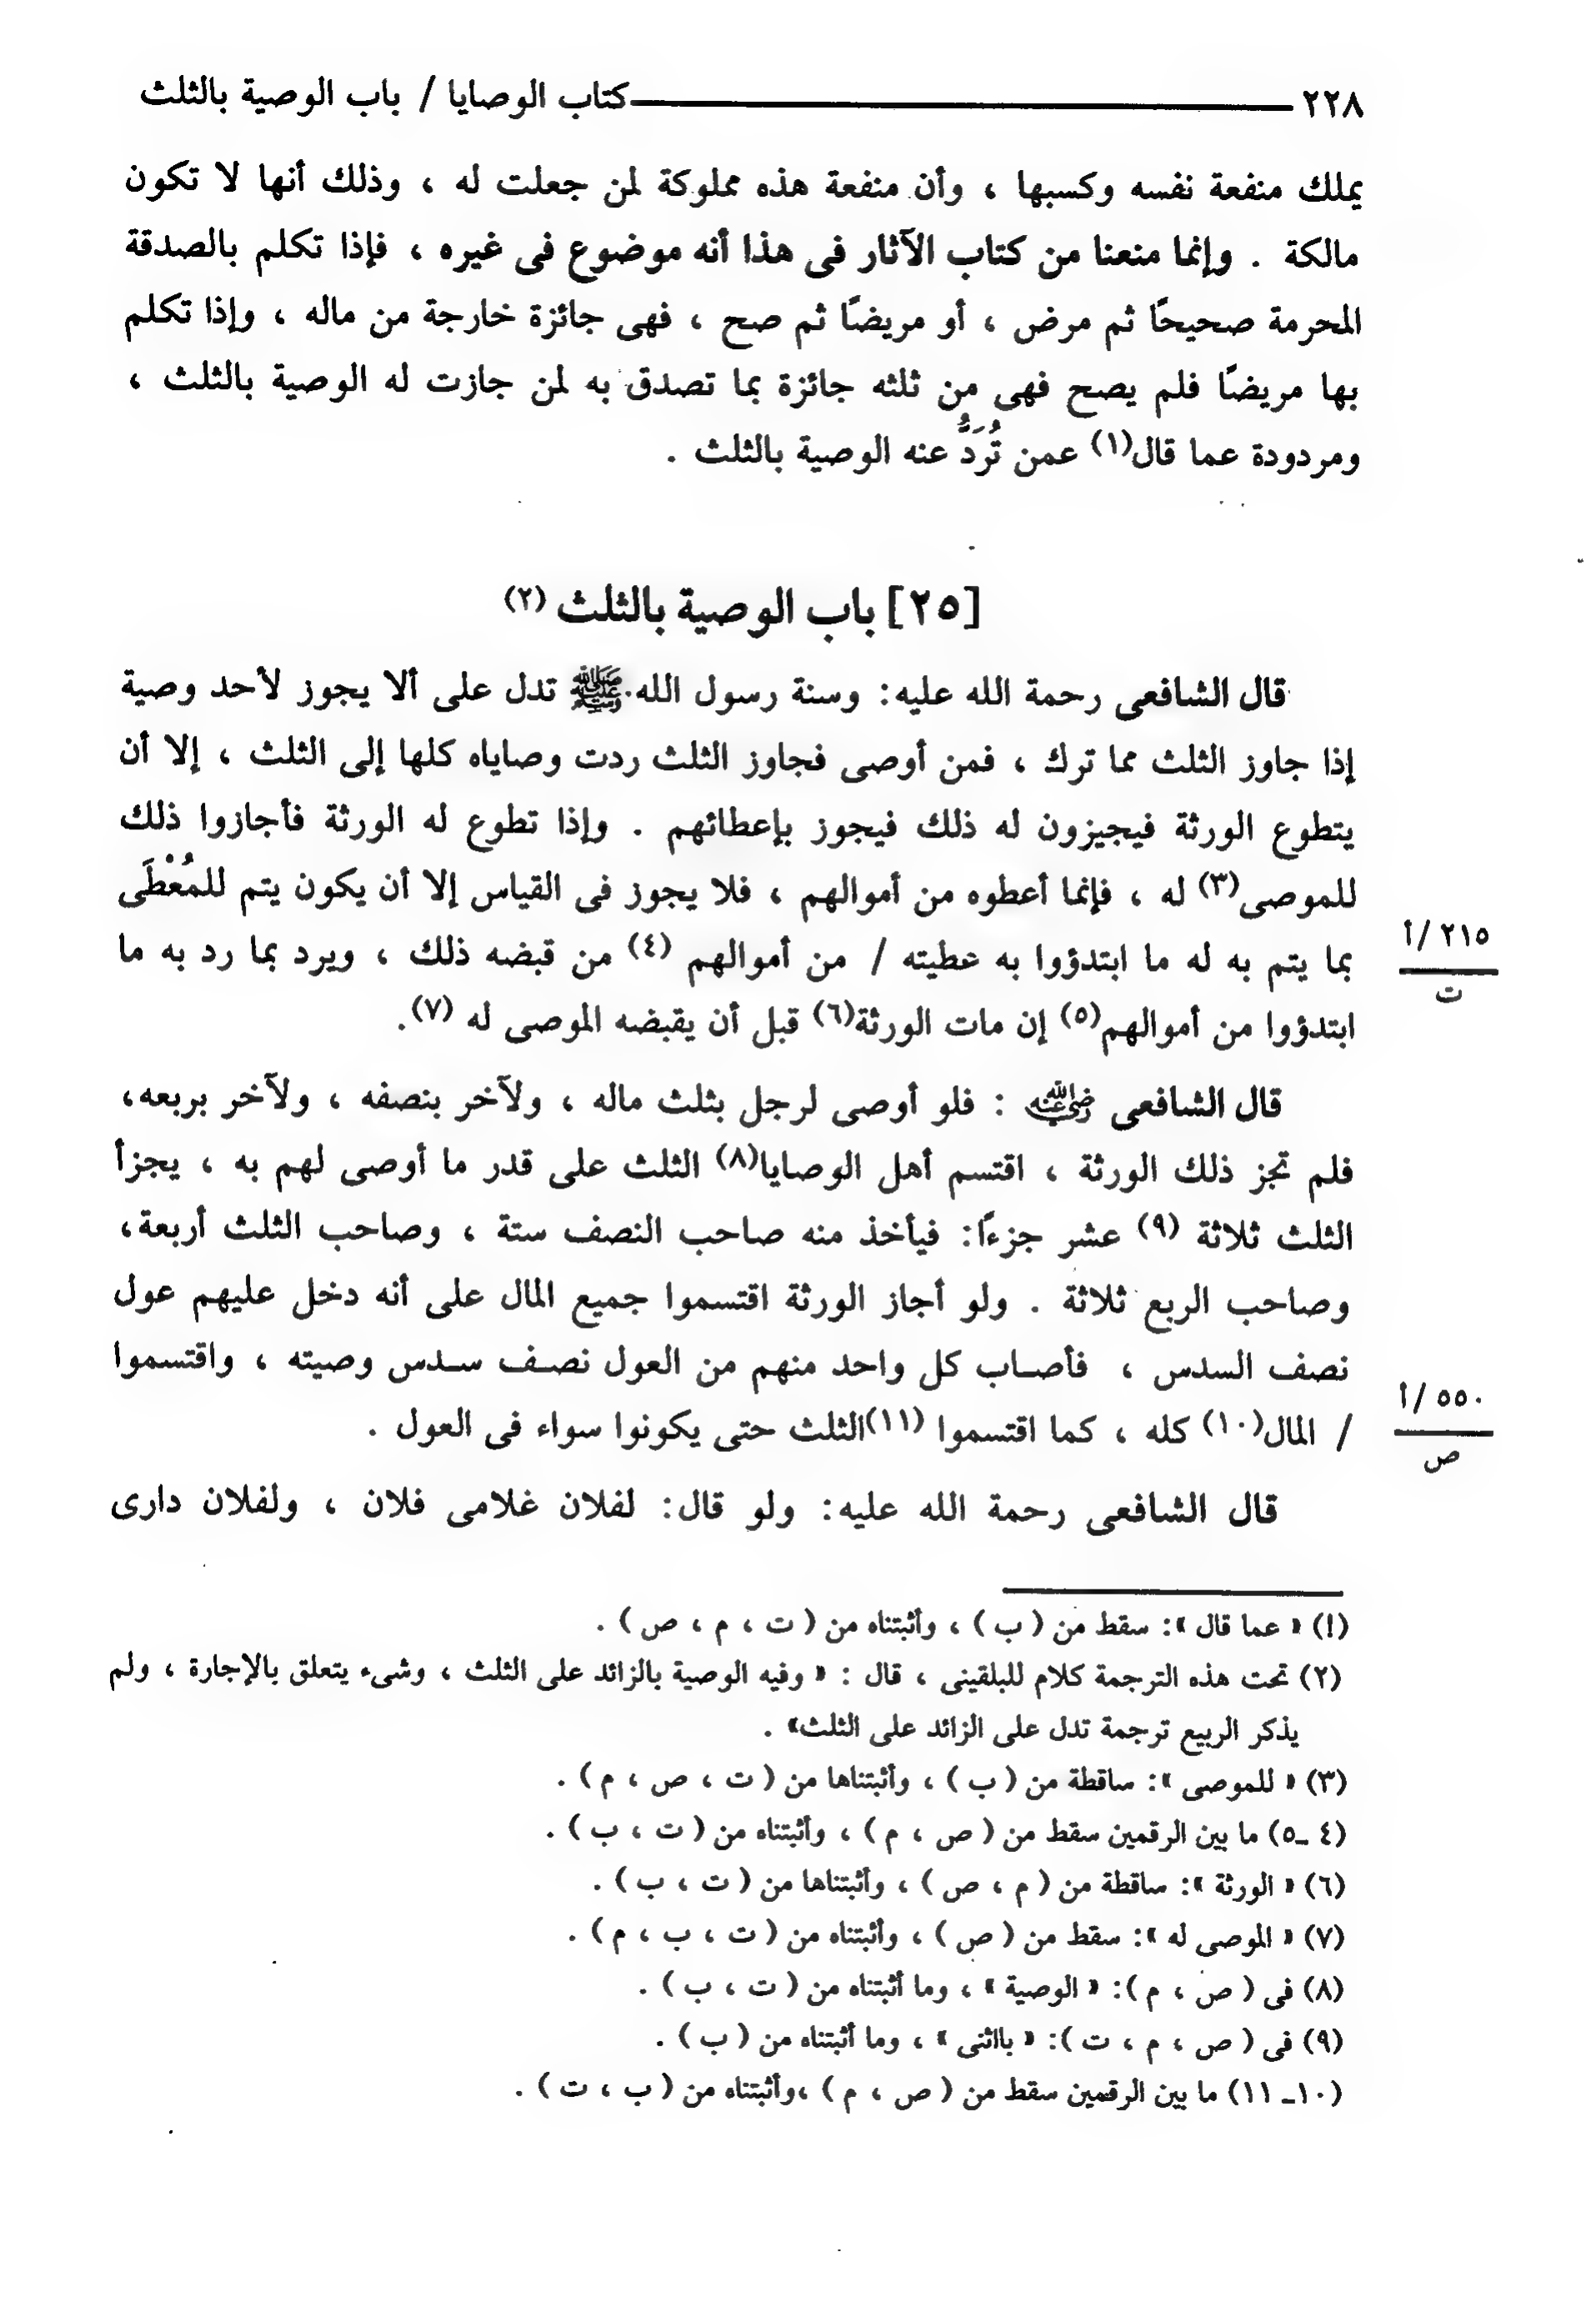 ٢٢٨ كتاب الوصايا / باب الوصية بالثلث
يملك منفعة نفسه وكسبها ، وأن منفعة هذه مملوكة لمن جعلت له ، وذلك أنها لا تكون
مالكة . وإنما منعنا من كتاب الآثار فى هذا أنه موضوع فى غيره ، فإذا تكلم بالصدقة
المحرمة صحيحًا ثم مرض ، أو مريضًا ثم صح ، فهى جائزة خارجة من ماله ، وإذا تكلم
بها مريضًا فلم يصح فهى من ثلثه جائزة بما تصدق به لمن جازت له الوصية بالثلث ،
ومردودة عما قال(١) عمن تُرَدُّ عنه الوصية بالثلث .
[٢٥] باب الوصية بالثلث (٢)
قال الشافعى رحمة الله عليه: وسنة رسول الله ﷺ تدل على ألا يجوز لأحد وصية
إذا جاوز الثلث مما ترك ، فمن أوصى فجاوز الثلث ردت وصاياه كلها إلى الثلث ، إلا أن
يتطوع الورثة فيجيزون له ذلك فيجوز بإعطائهم . وإذا تطوع له الورثة فأجازوا ذلك
للموصى(٣) له ، فإنما أعطوه من أموالهم ، فلا يجوز فى القياس إلا أن يكون يتم للمُعْطَى
بما يتم به له ما ابتدؤوا به عطيته / من أموالهم (٤) من قبضه ذلك ، ويرد بما رد به ما
٢١٥/أ
ت
ابتدؤوا من أموالهم(٥) إن مات الورثة(٦) قبل أن يقبضه الموصى له (٧).
قال الشافعى رضي الله عنه : فلو أوصى لرجل بثلث ماله ، ولآخر بنصفه ، ولآخر بربعه،
فلم تجز ذلك الورثة ، اقتسم أهل الوصايا(٨) الثلث على قدر ما أوصى لهم به ، يجزأ
الثلث ثلاثة (٩) عشر جزءًا: فيأخذ منه صاحب النصف ستة ، وصاحب الثلث أربعة،
وصاحب الربع ثلاثة . ولو أجاز الورثة اقتسموا جميع المال على أنه دخل عليهم عول
نصف السدس ، فأصاب كل واحد منهم من العول نصف سدس وصيته ، واقتسموا
٥٥٠/أ
ص
/ المال(١٠) كله ، كما اقتسموا (١١)الثلث حتى يكونوا سواء فى العول .
قال الشافعى رحمة الله عليه: ولو قال: لفلان غلامى فلان ، ولفلان دارى
(١) « عما قال »: سقط من ( ب ) ، وأثبتناه من ( ت ، م ، ص ) .
(٢) تحت هذه الترجمة كلام للبلقينى ، قال : « وفيه الوصية بالزائد على الثلث ، وشىء يتعلق بالإجارة ، ولم
يذكر الربيع ترجمة تدل على الزائد على الثلث» .
(٣) « للموصى »: ساقطة من ( ب ) ، وأثبتناها من ( ت ، ص ، م ) .
(٤ ـ٥) ما بين الرقمين سقط من ( ص ، م ) ، وأثبتناه من ( ت ، ب ) .
(٦) « الورثة »: ساقطة من ( م ، ص ) ، وأثبتناها من ( ت ، ب ) .
(٧) « الموصى له »: سقط من ( ص ) ، وأثبتناه من ( ت ، ب ، م ) .
(٨) فى ( ص ، م ): « الوصية » ، وما أثبتناه من ( ت ، ب ) .
(٩) فى ( ص ، م ، ت ): « بااثنى » ، وما أثبتناه من ( ب ) .
(١٠ـ ١١) ما بين الرقمين سقط من ( ص ، م ) ،وأثبتناه من ( ب ، ت ) .